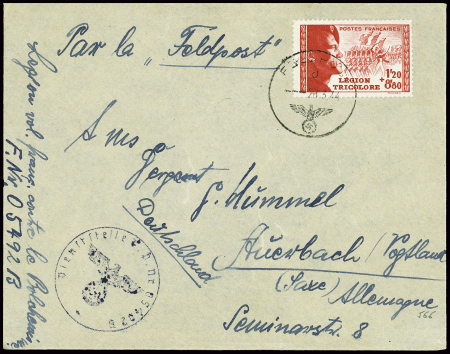 Par la „Feldpost"
POSTES FRANÇAISES
LÉGION
TRICOLORE
1F20
+
8F80
A ms
Sergent G. Hummel
Deutschland
Auerbach / Vogtland
(Saxe) Allemagne
Seminarstr. 8
566
Legion vol. franc. contre le Bolchevisme.
F. Nr. 05492 B
Dienststelle F.P. Nr. 05492 B